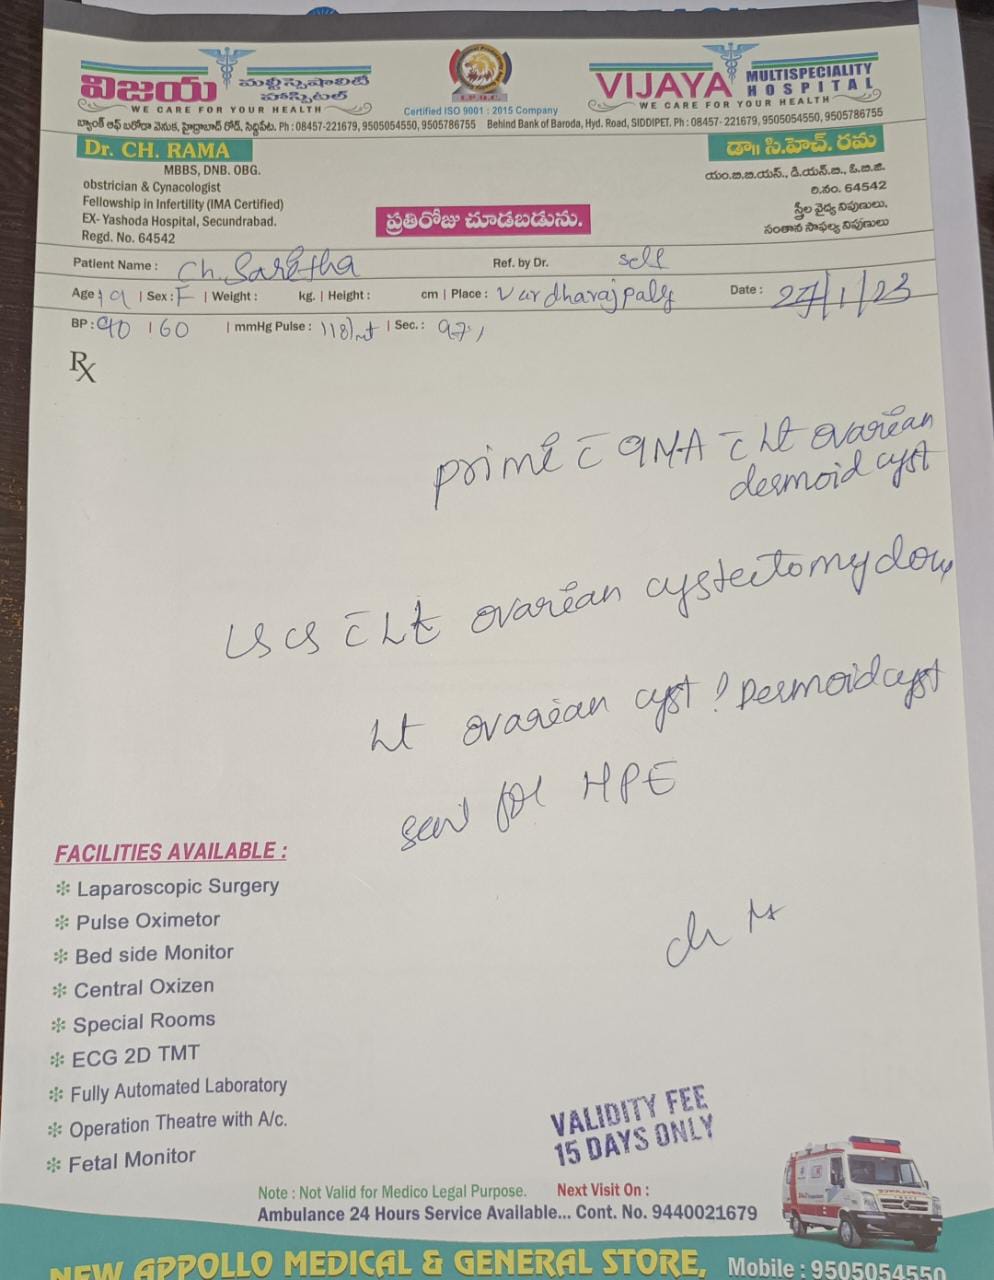 విజయ మల్టీస్పెషాలిటి హాస్పిటల్
WE CARE FOR YOUR HEALTH
I.P.Q.C.
Certified ISO 9001 : 2015 Company
VIJAYA MULTISPECIALITY HOSPITAL
WE CARE FOR YOUR HEALTH
బ్యాంక్ ఆఫ్ బరోడా వెనుక, హైద్రాబాద్ రోడ్, సిద్దిపేట. Ph : 08457-221679, 9505054550, 9505786755 Behind Bank of Baroda, Hyd. Road, SIDDIPET. Ph : 08457- 221679, 9505054550, 9505786755
Dr. CH. RAMA
MBBS, DNB. OBG.
obstrician & Cynacologist
Fellowship in Infertility (IMA Certified)
EX- Yashoda Hospital, Secundrabad.
Regd. No. 64542
ప్రతిరోజు చూడబడును.
డా॥ సి.హెచ్. రమ
యం.బి.బి.యస్., డి.యన్.బి., ఓ.బి.జి.
రి.నం. 64542
స్త్రీల వైద్య నిపుణులు,
సంతాన సాఫల్య నిపుణులు
Patient Name : Ch. Saritha Ref. by Dr. self
Age 19 | Sex : F | Weight : kg. | Height : cm | Place : Vardharajpally Date : 27/1/23
BP : 90 | 60 | mmHg Pulse : 118/mt | Sec. : 97%
Rx
primi c̄ 9MA c̄ Lt ovarian
dermoid cyst
LSCS c̄ Lt ovarian cystectomy done
Lt ovarian cyst ? Dermoid cyst
sent for HPE
FACILITIES AVAILABLE :
✻ Laparoscopic Surgery
✻ Pulse Oximetor
✻ Bed side Monitor
✻ Central Oxizen
✻ Special Rooms
✻ ECG 2D TMT
✻ Fully Automated Laboratory
✻ Operation Theatre with A/c.
✻ Fetal Monitor
VALIDITY FEE
15 DAYS ONLY
Note : Not Valid for Medico Legal Purpose. Next Visit On :
Ambulance 24 Hours Service Available... Cont. No. 9440021679
NEW APPOLLO MEDICAL & GENERAL STORE, Mobile : 9505054550